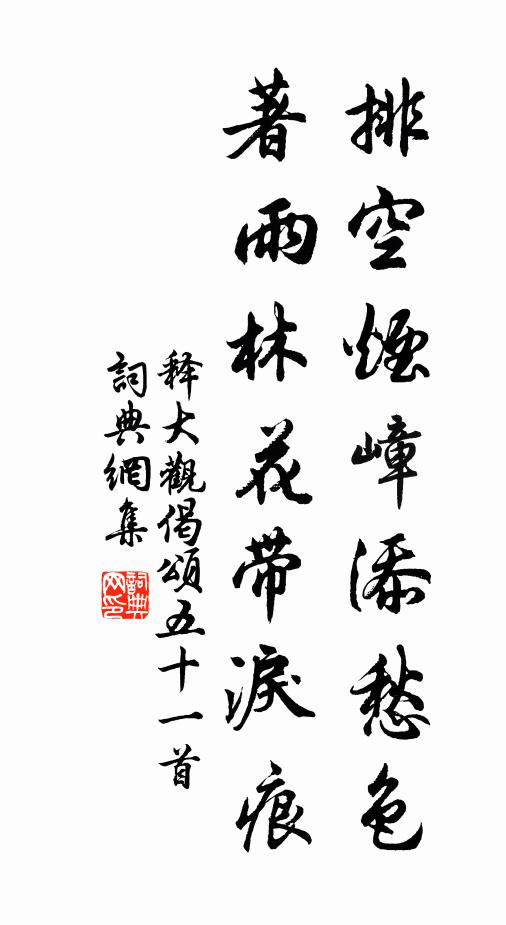 排空煙嶂添愁色
著雨林花帶淚痕
释大觀偈頌五十一首
詞典網集
詞典網印